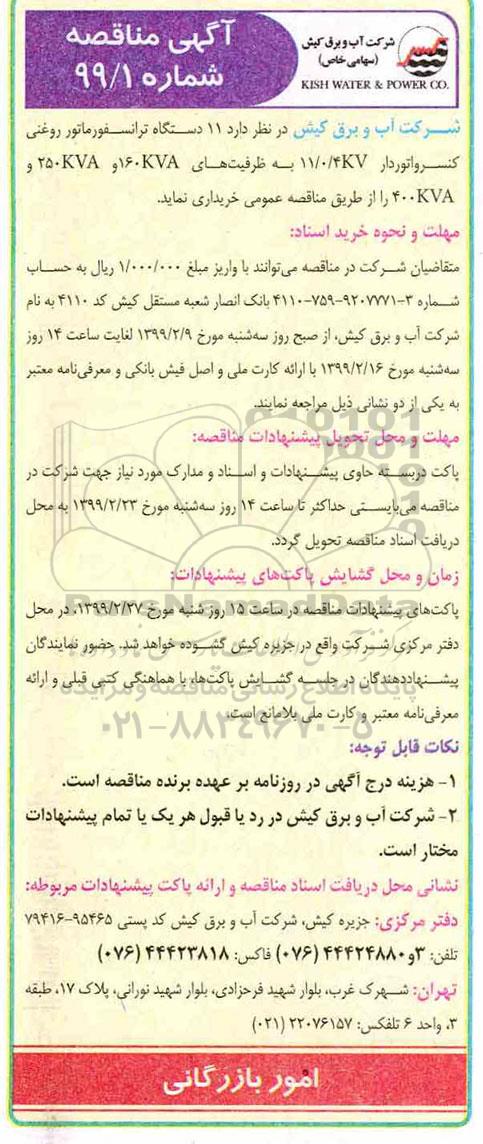 آگهی مناقصه
شماره ۹۹/۱
شرکت آب و برق کیش
(سهامی خاص)
KISH WATER & POWER CO.
شــرکت آب و برق کیش در نظر دارد ۱۱ دســتگاه ترانســفورماتور روغنی
کنســرواتوردار ۱۱/۰/۴KV بــه ظرفیت‌هــای ۱۶۰KVAو ۲۵۰KVA و
۴۰۰KVA را از طریق مناقصه عمومی خریداری نماید.
مهلت و نحوه خرید اسناد:
متقاضیان شــرکت در مناقصه می‌توانند با واریز مبلغ ۱/۰۰۰/۰۰۰ ریال به حســاب
شــماره ۳-۹۲۰۷۷۷۱-۷۵۹-۴۱۱۰ بانک انصار شعبه مستقل کیش کد ۴۱۱۰ به نام
شرکت آب و برق کیش، از صبح روز سه‌شنبه مورخ ۱۳۹۹/۲/۹ لغایت ساعت ۱۴ روز
سه‌شنبه مورخ ۱۳۹۹/۲/۱۶ با ارائه کارت ملی و اصل فیش بانکی و معرفی‌نامه معتبر
به یکی از دو نشانی ذیل مراجعه نمایند.
مهلت و محل تحویل پیشنهادات مناقصه:
پاکت دربســته حاوی پیشــنهادات و اســناد و مدارک مورد نیاز جهت شرکت در
مناقصه می‌بایســتی حداکثر تا ساعت ۱۴ روز سه‌شنبه مورخ ۱۳۹۹/۲/۲۳ به محل
دریافت اسناد مناقصه تحویل گردد.
زمان و محل گشایش پاکت‌های پیشنهادات:
پاکت‌های پیشنهادات مناقصه در ساعت ۱۵ روز شنبه مورخ ۱۳۹۹/۲/۲۷، در محل
دفتر مرکزی شــرکت واقع در جزیره کیش گشــوده خواهد شد. حضور نمایندگان
پیشــنهاددهندگان در جلســه گشــایش پاکت‌ها، با هماهنگی کتبی قبلی و ارائه
معرفی‌نامه معتبر و کارت ملی بلامانع است.
پایگاه اطلاع رسانی مناقصه و مزایده
ParsNamadData
۰۲۱-۸۸۳۴۹۶۷۰-۵
نکات قابل توجه:
۱- هزینه درج آگهی در روزنامه بر عهده برنده مناقصه است.
۲- شرکت آب و برق کیش در رد یا قبول هر یک یا تمام پیشنهادات
مختار است.
نشانی محل دریافت اسناد مناقصه و ارائه پاکت پیشنهادات مربوطه:
دفتر مرکزی: جزیره کیش، شرکت آب و برق کیش کد پستی ۹۵۴۶۵-۷۹۴۱۶
تلفن: ۳و۴۴۴۲۴۸۸۰ (۰۷۶) فاکس: ۴۴۴۲۳۸۱۸ (۰۷۶)
تهران: شــهرک غرب، بلوار شهید فرحزادی، بلوار شهید نورانی، پلاک ۱۷، طبقه
۳، واحد ۶ تلفکس: ۲۲۰۷۶۱۵۷ (۰۲۱)
امور بازرگانی